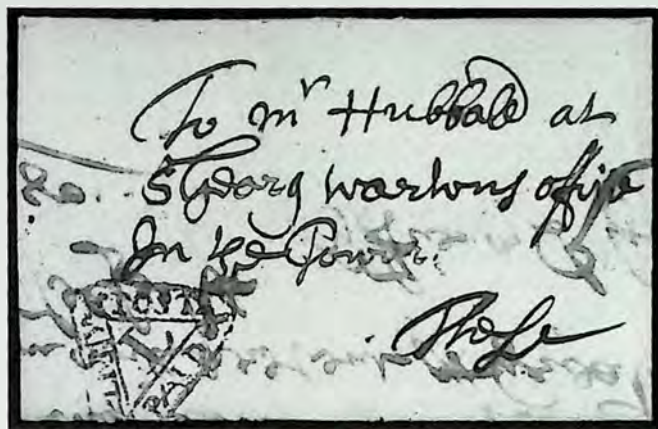 To mʳ Hubbald at
Sʳ Georg wartons offise
In the Tower.
These
POST
PAID